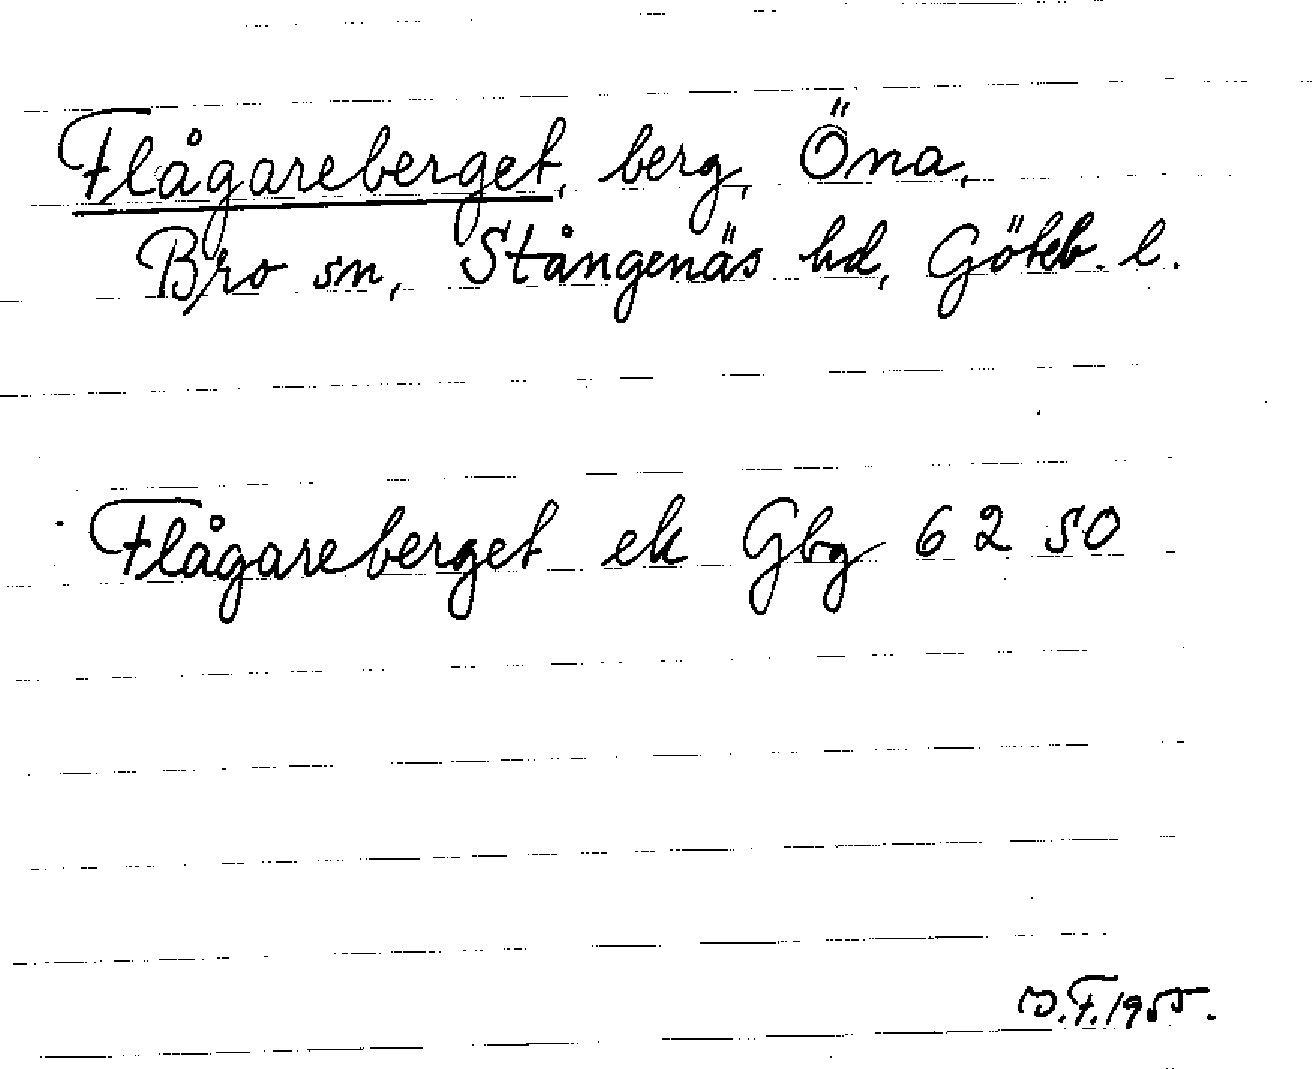 Flågareberget, berg, Öna,
Bro sn, Stångenäs hd, Göteb. l.
Flågareberget ek Gbg 62 SO
F. 1955.